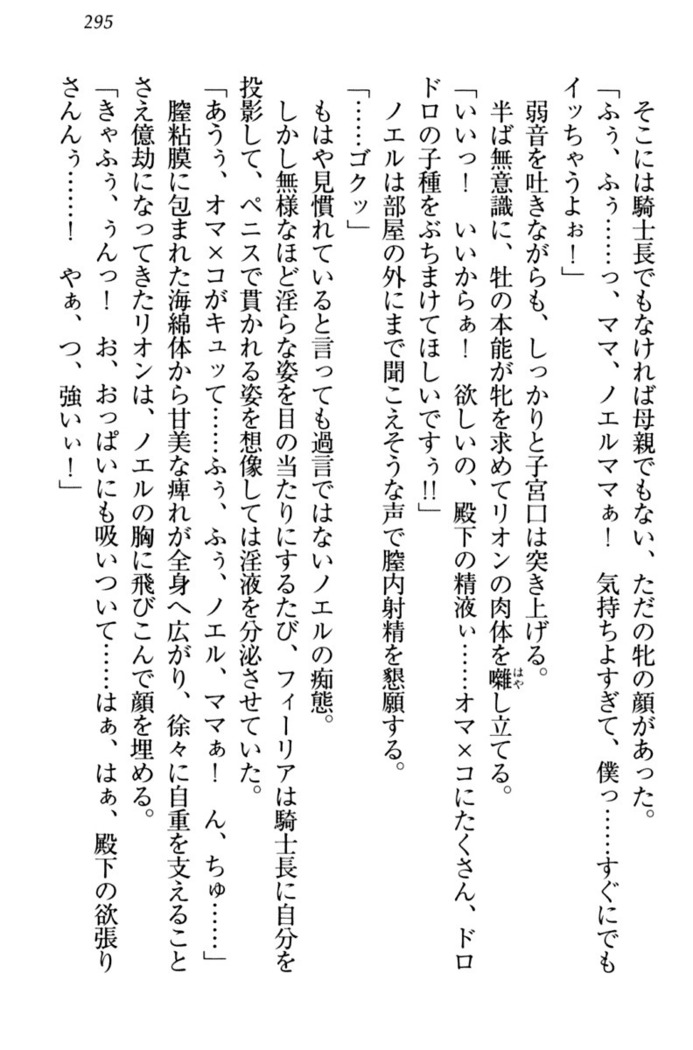 295
そこには騎士長でもなければ母親でもない、ただの牝の顔があった。
「ふぅ、ふぅ……っ、ママ、ノエルママぁ！　気持ちよすぎて、僕っ……すぐにでも
イッちゃうよぉ！」
弱音を吐きながらも、しっかりと子宮口は突き上げる。
半ば無意識に、牡の本能が牝を求めてリオンの肉体を囃し立てる。
「いいっ！　いいからぁ！　欲しいの、殿下の精液ぃ……オマ×コにたくさん、ドロ
ドロの子種をぶちまけてほしいですぅ!!」
ノエルは部屋の外にまで聞こえそうな声で膣内射精を懇願する。
「……ゴクッ」
もはや見慣れていると言っても過言ではないノエルの痴態。
しかし無様なほど淫らな姿を目の当たりにするたび、フィーリアは騎士長に自分を
投影して、ペニスで貫かれる姿を想像しては淫液を分泌させていた。
「あうぅ、オマ×コがキュッて……ふぅ、ふぅ、ノエル、ママぁ！　ん、ちゅ……」
膣粘膜に包まれた海綿体から甘美な痺れが全身へ広がり、徐々に自重を支えること
さえ億劫になってきたリオンは、ノエルの胸に飛びこんで顔を埋める。
「きゃふぅ、うんっ！　お、おっぱいにも吸いついて……はぁ、はぁ、殿下の欲張り
さんんぅ……！　やぁ、つ、強いぃ！」